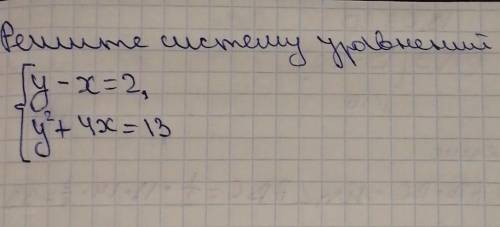 Решите систему уравнений
y - x = 2,
y² + 4x = 13